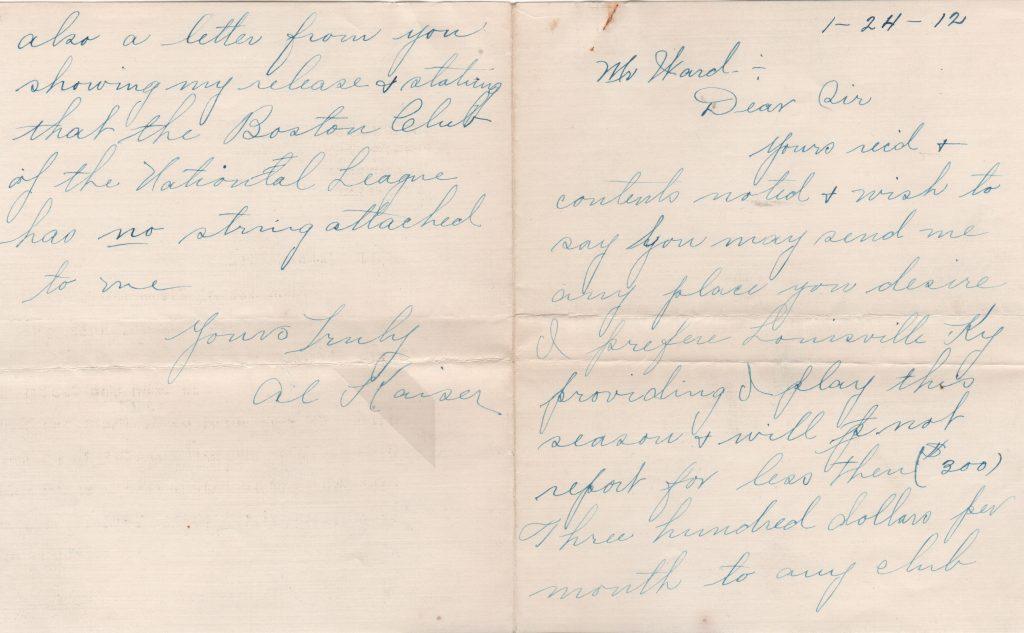 1-24-12
Mr Ward -:
Dear Sir
Yours recd +
contents noted + wish to
say you may send me
any place you desire
I prefere Louisville Ky
providing I play this
season + will not
report for less then ($300)
Three hundred dollars per
month to any club
also a letter from you
showing my release + stating
that the Boston Club
of the National League
has no string attached
to me
Yours Truly
Al Kaiser